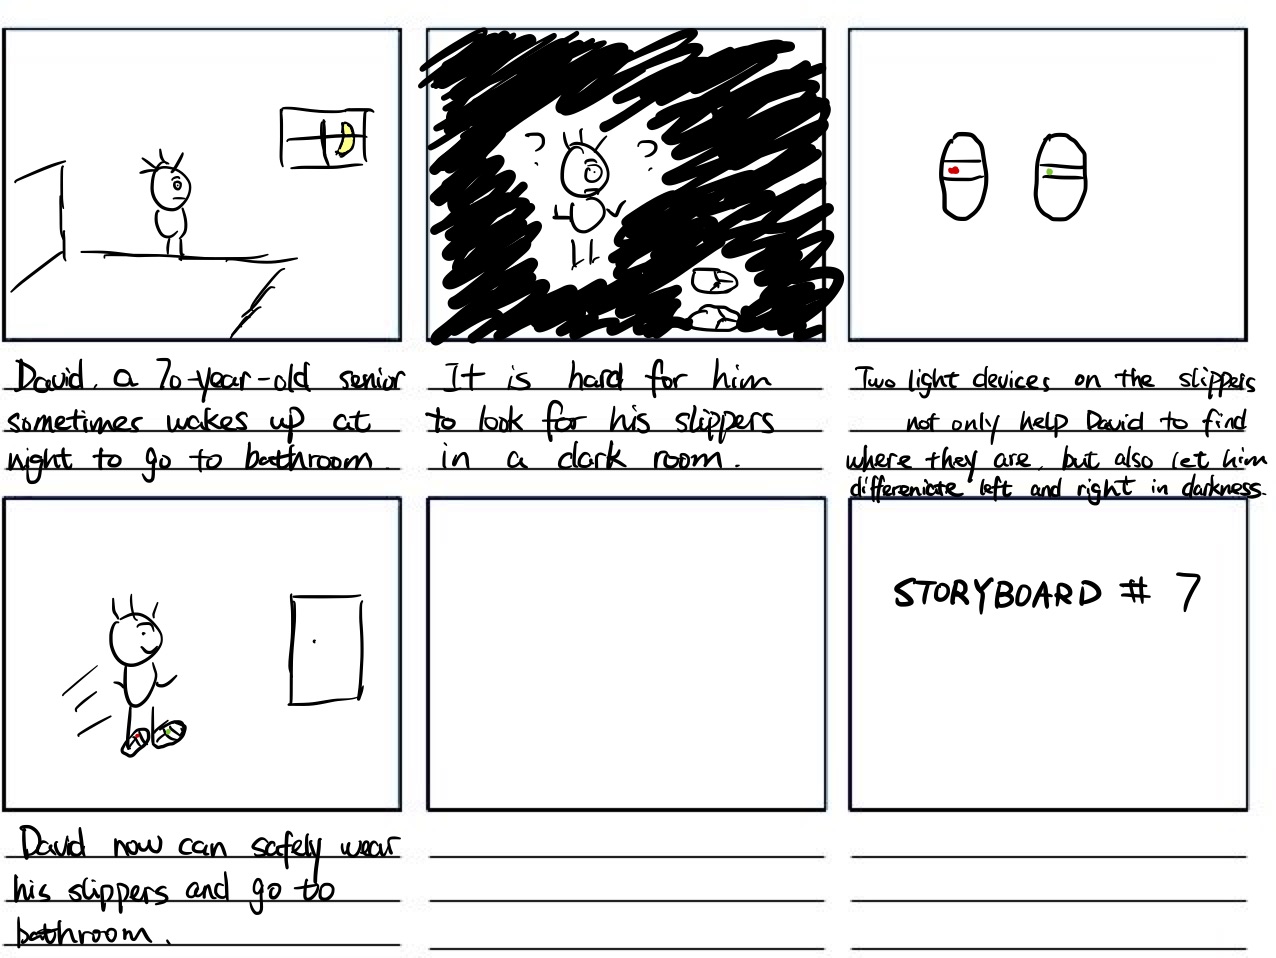 David, a 70-year-old senior
sometimes wakes up at
night to go to bathroom.
? ?
It is hard for him
to look for his slippers
in a dark room.
Two light devices on the slippers
not only help David to find
where they are, but also let him
differenicate left and right in darkness.
David now can safely wear
his slippers and go to
bathroom.
STORYBOARD # 7